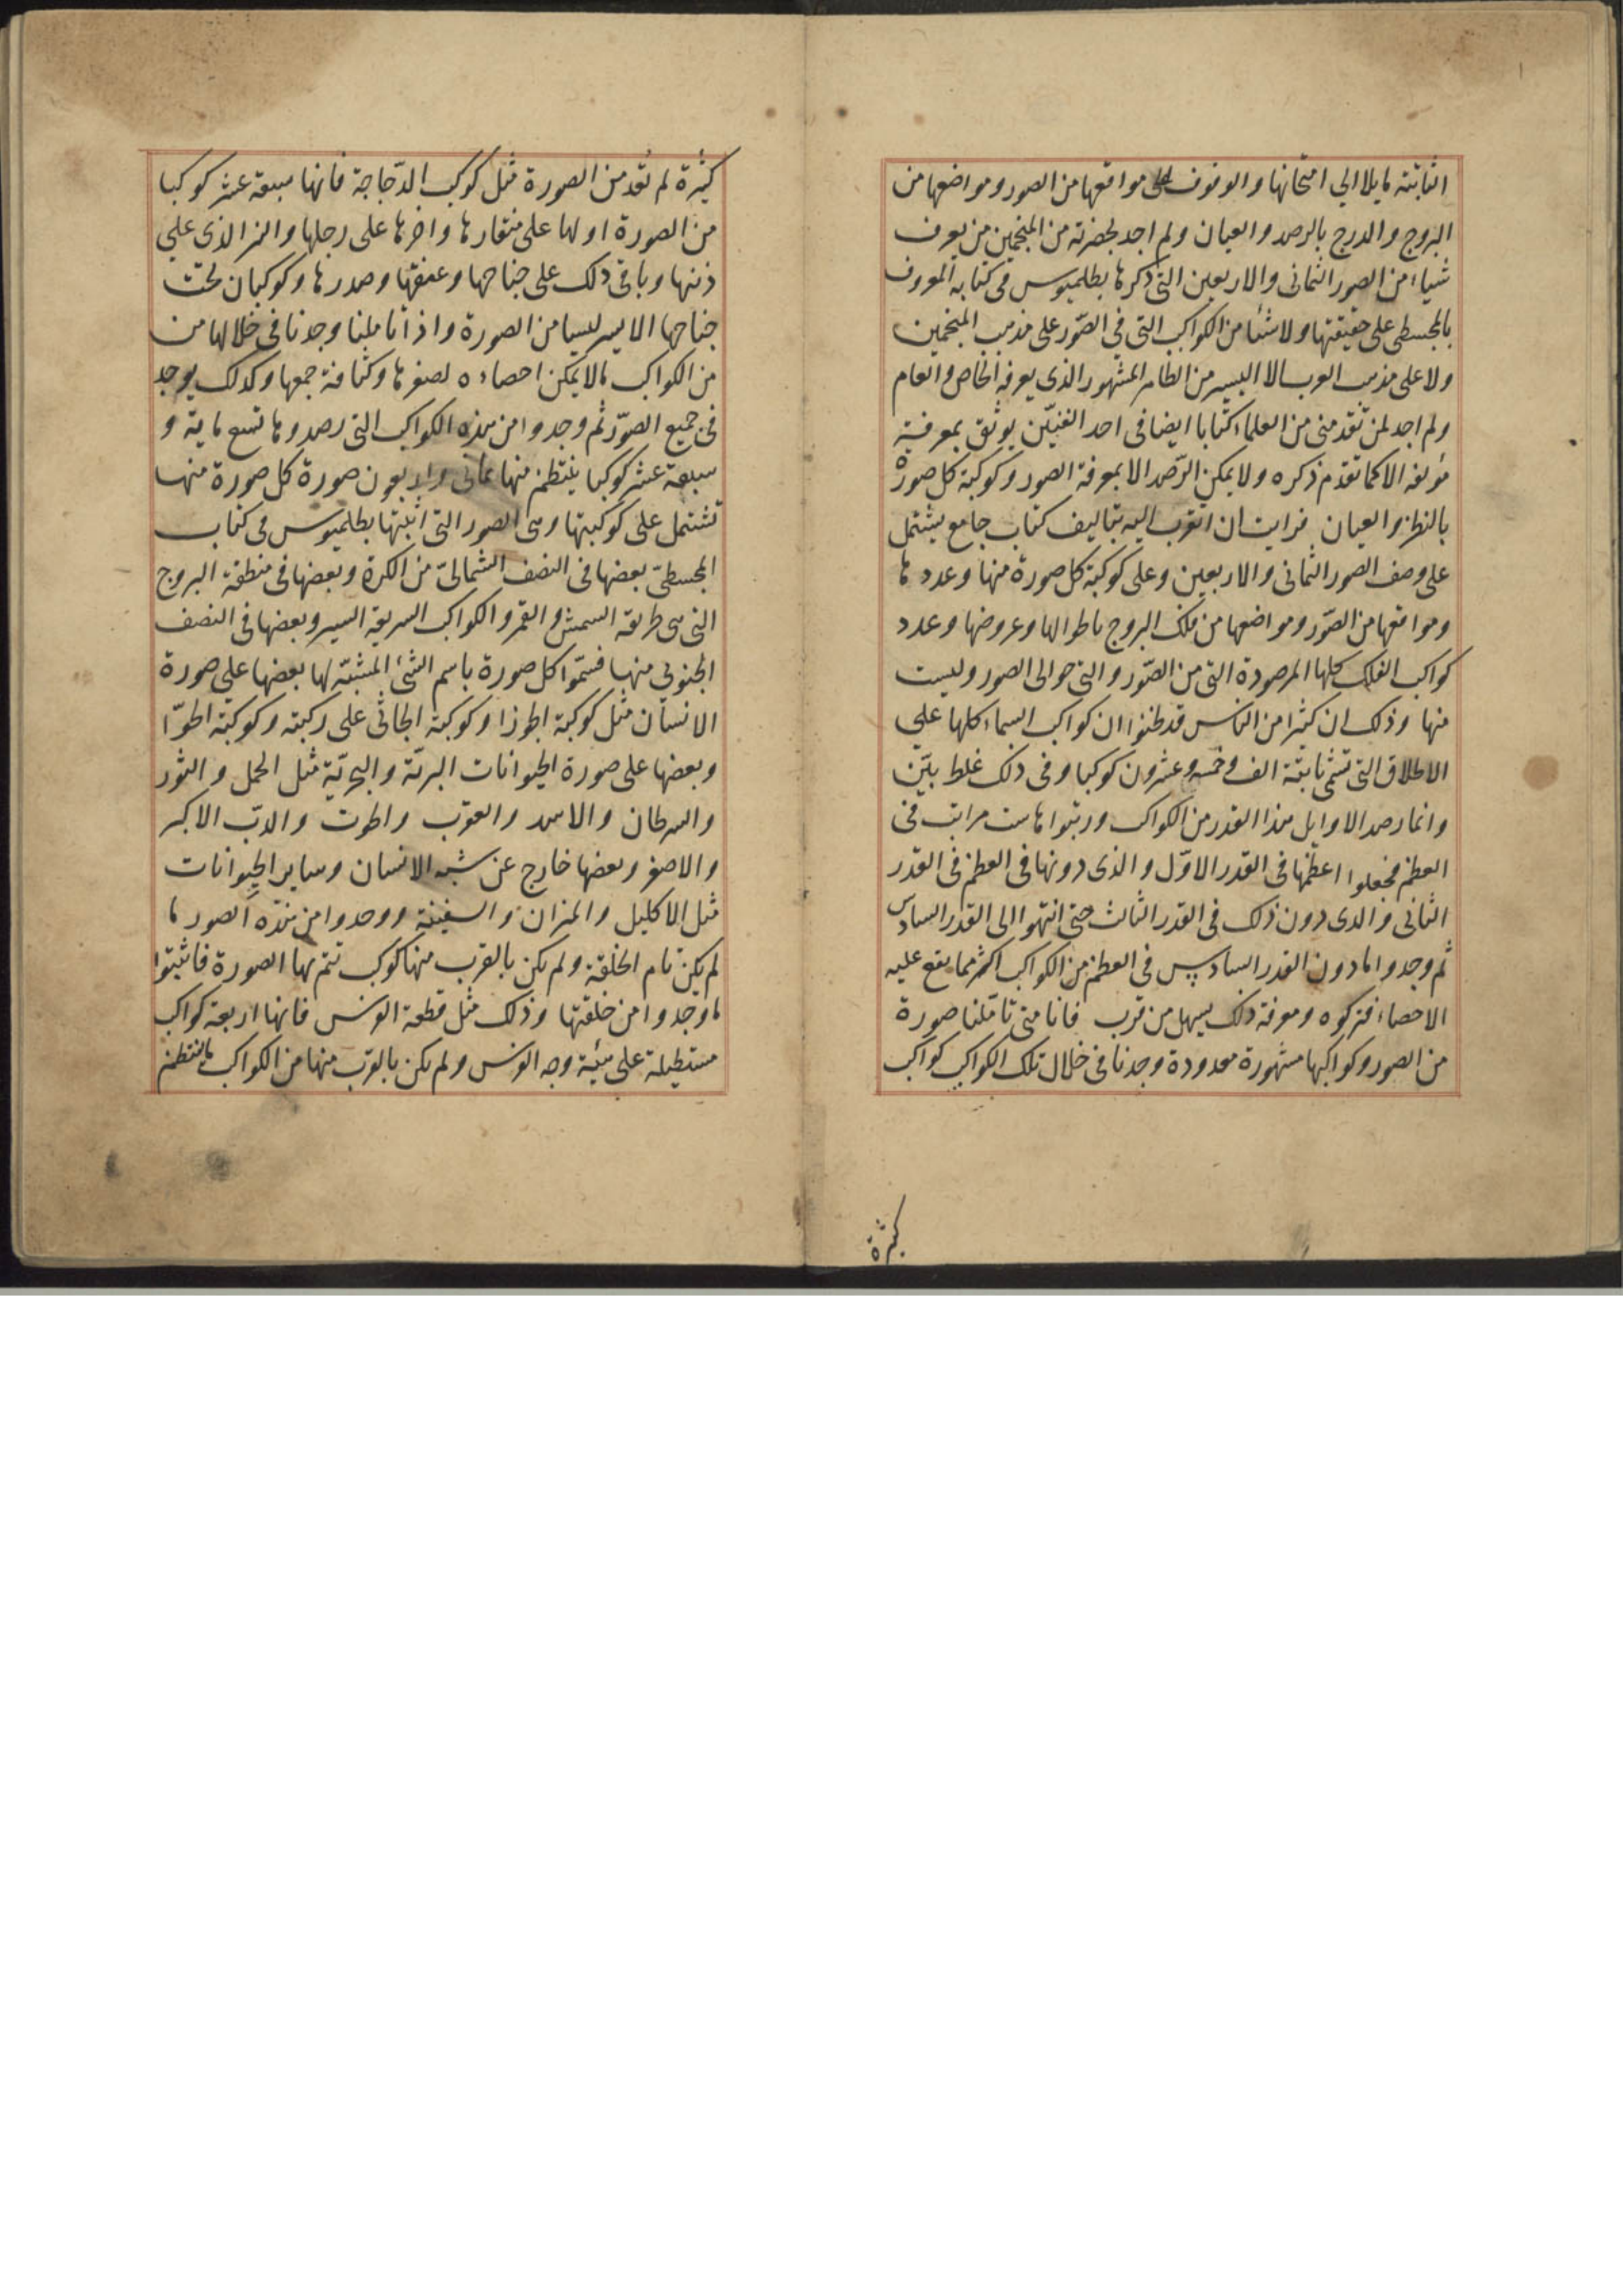 الثابتة مايلا الي امتحانها والوقوف على مواقعها من الصور ومواضعها من
البروج والدرج بالرصد والعيان ولم اجد بحضرته من المنجمين من يعرف
شياء من الصور الثمانى والاربعين التى ذكرها بطلميوس فى كتابه المعروف
بالمجسطى على حقيقتها ولا شئا من الكواكب التى في الصّور على مذهب المنجمين
ولا على مذهب العرب الا اليسير من الظاهر المشهور الذى يعرفه الخاص والعام
ولم اجد لمن تقدمنى من العلماء كتابا ايضا فى احد الفنيّن يوثق بمعرفة
مؤلفه الا كما تقدم ذكره ولا يمكن الرّصد الا بمعرفة الصور وكوكبة كل صورة
بالنظر والعيان فرايت ان اتقرب اليه بتاليف كتاب جامع يشتمل
على وصف الصور الثمانى والاربعين وعلى كوكبة كل صورة منها وعددها
ومواقعها من الصّور ومواضعها من فلك البروج باطوالها وعروضها وعدد
كواكب الفلك كلها المرصودة التى من الصّور والتى حوالى الصور وليست
منها وذلك ان كثيرا من الناس قد ظنوا ان كواكب السماء كلها علي
الاطلاق التى تسمّى ثابتة الف وخمسه وعشرون كوكبا وفى ذلك غلط بيّن
وانما رصد الاوايل هذا القدر من الكواكب ورتبوها ست مراتب فى
العظم فجعلوا اعظمها فى القدر الاوّل والذى دونها فى العظم فى القدر
الثانى والذى دون ذلك فى القدر الثالث حتى انتهوا الى القدر السادس
ثم وجدوا ما دون القدر السادس فى العظم من الكواكب اكثر مما يقع عليه
الاحصاء فتركوه ومعرفة ذلك يسهل من قرب فانا متى تامّلنا صورة
من الصور وكواكبها مشهورة معدودة وجدنا فى خلال تلك الكواكب كواكب
كثيرة
كثيرة لم تعد من الصورة مثل كوكب الدّجاجة فانها سبعة عشر كوكبا
من الصورة اولها على منقارها واخرها على رجلها والنر الذى علي
ذنبها وباقى ذلك على جناحها وعنقها وصدرها وكوكبان تحت
جناحها الايسر ليسا من الصورة واذا تاملنا وجدنا فى خلالها من
من الكواكب مالا يمكن احصاءه لصغرها وكثافة جمعها وكذلك يوجد
فى جميع الصوّر ثم وجدوا من هذه الكواكب التى رصدوها تسع ماية و
سبعة عشر كوكبا ينتظم منها ثمانى واربعون صورة كل صورة منها
تشتمل على كوكبتها وهى الصور التى اثبتها بطلميوس فى كتاب
المجسطىّ بعضها فى النصف الشمالىّ من الكرة وبعضها فى منطقة البروج
التى هى طريقه السمش والقمر والكواكب السريعة السير وبعضها فى النصف
الجنوبي منها فسمّوا كل صورة باسم الشئ المشبّه لها بعضها علي صورة
الانسان مثل كوكبة الجوزا وكوكبة الجاثى على ركبته وكوكبة الحوّا
وبعضها على صورة الحيوانات البريّة والبحريّة مثل الحمل والثور
والسرطان والاسد والعقرب والحوت والدبّ الاكبر
والاصغر وبعضها خارج عن شبه الانسان وساير الحيوانات
مثل الاكليل والميزان والسفينة ووجدوا من هذه الصور ما
لم يكن تام الخلقة ولم يكن بالقرب منها كوكب تتم بها الصورة فاثبتوا
ما وجدوا من خلقتها وذلك مثل قطعة الفرس فانها اربعة كواكب
مستطيلة على هيئة وجه الفرس ولم يكن بالقرب منها من الكواكب ما ينتظم